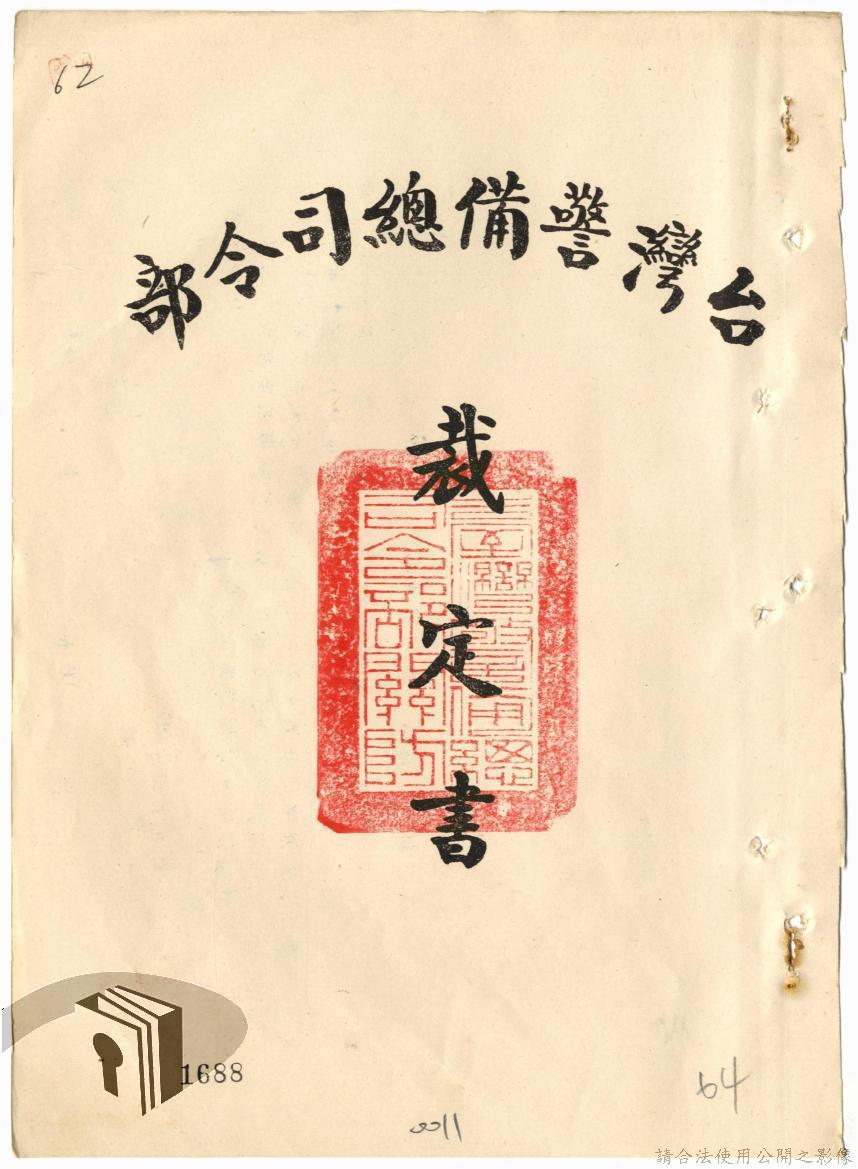 62
台灣警備總司令部
裁定書
臺灣警備總司令部關防
1688
64
0011
請合法使用公開之影像